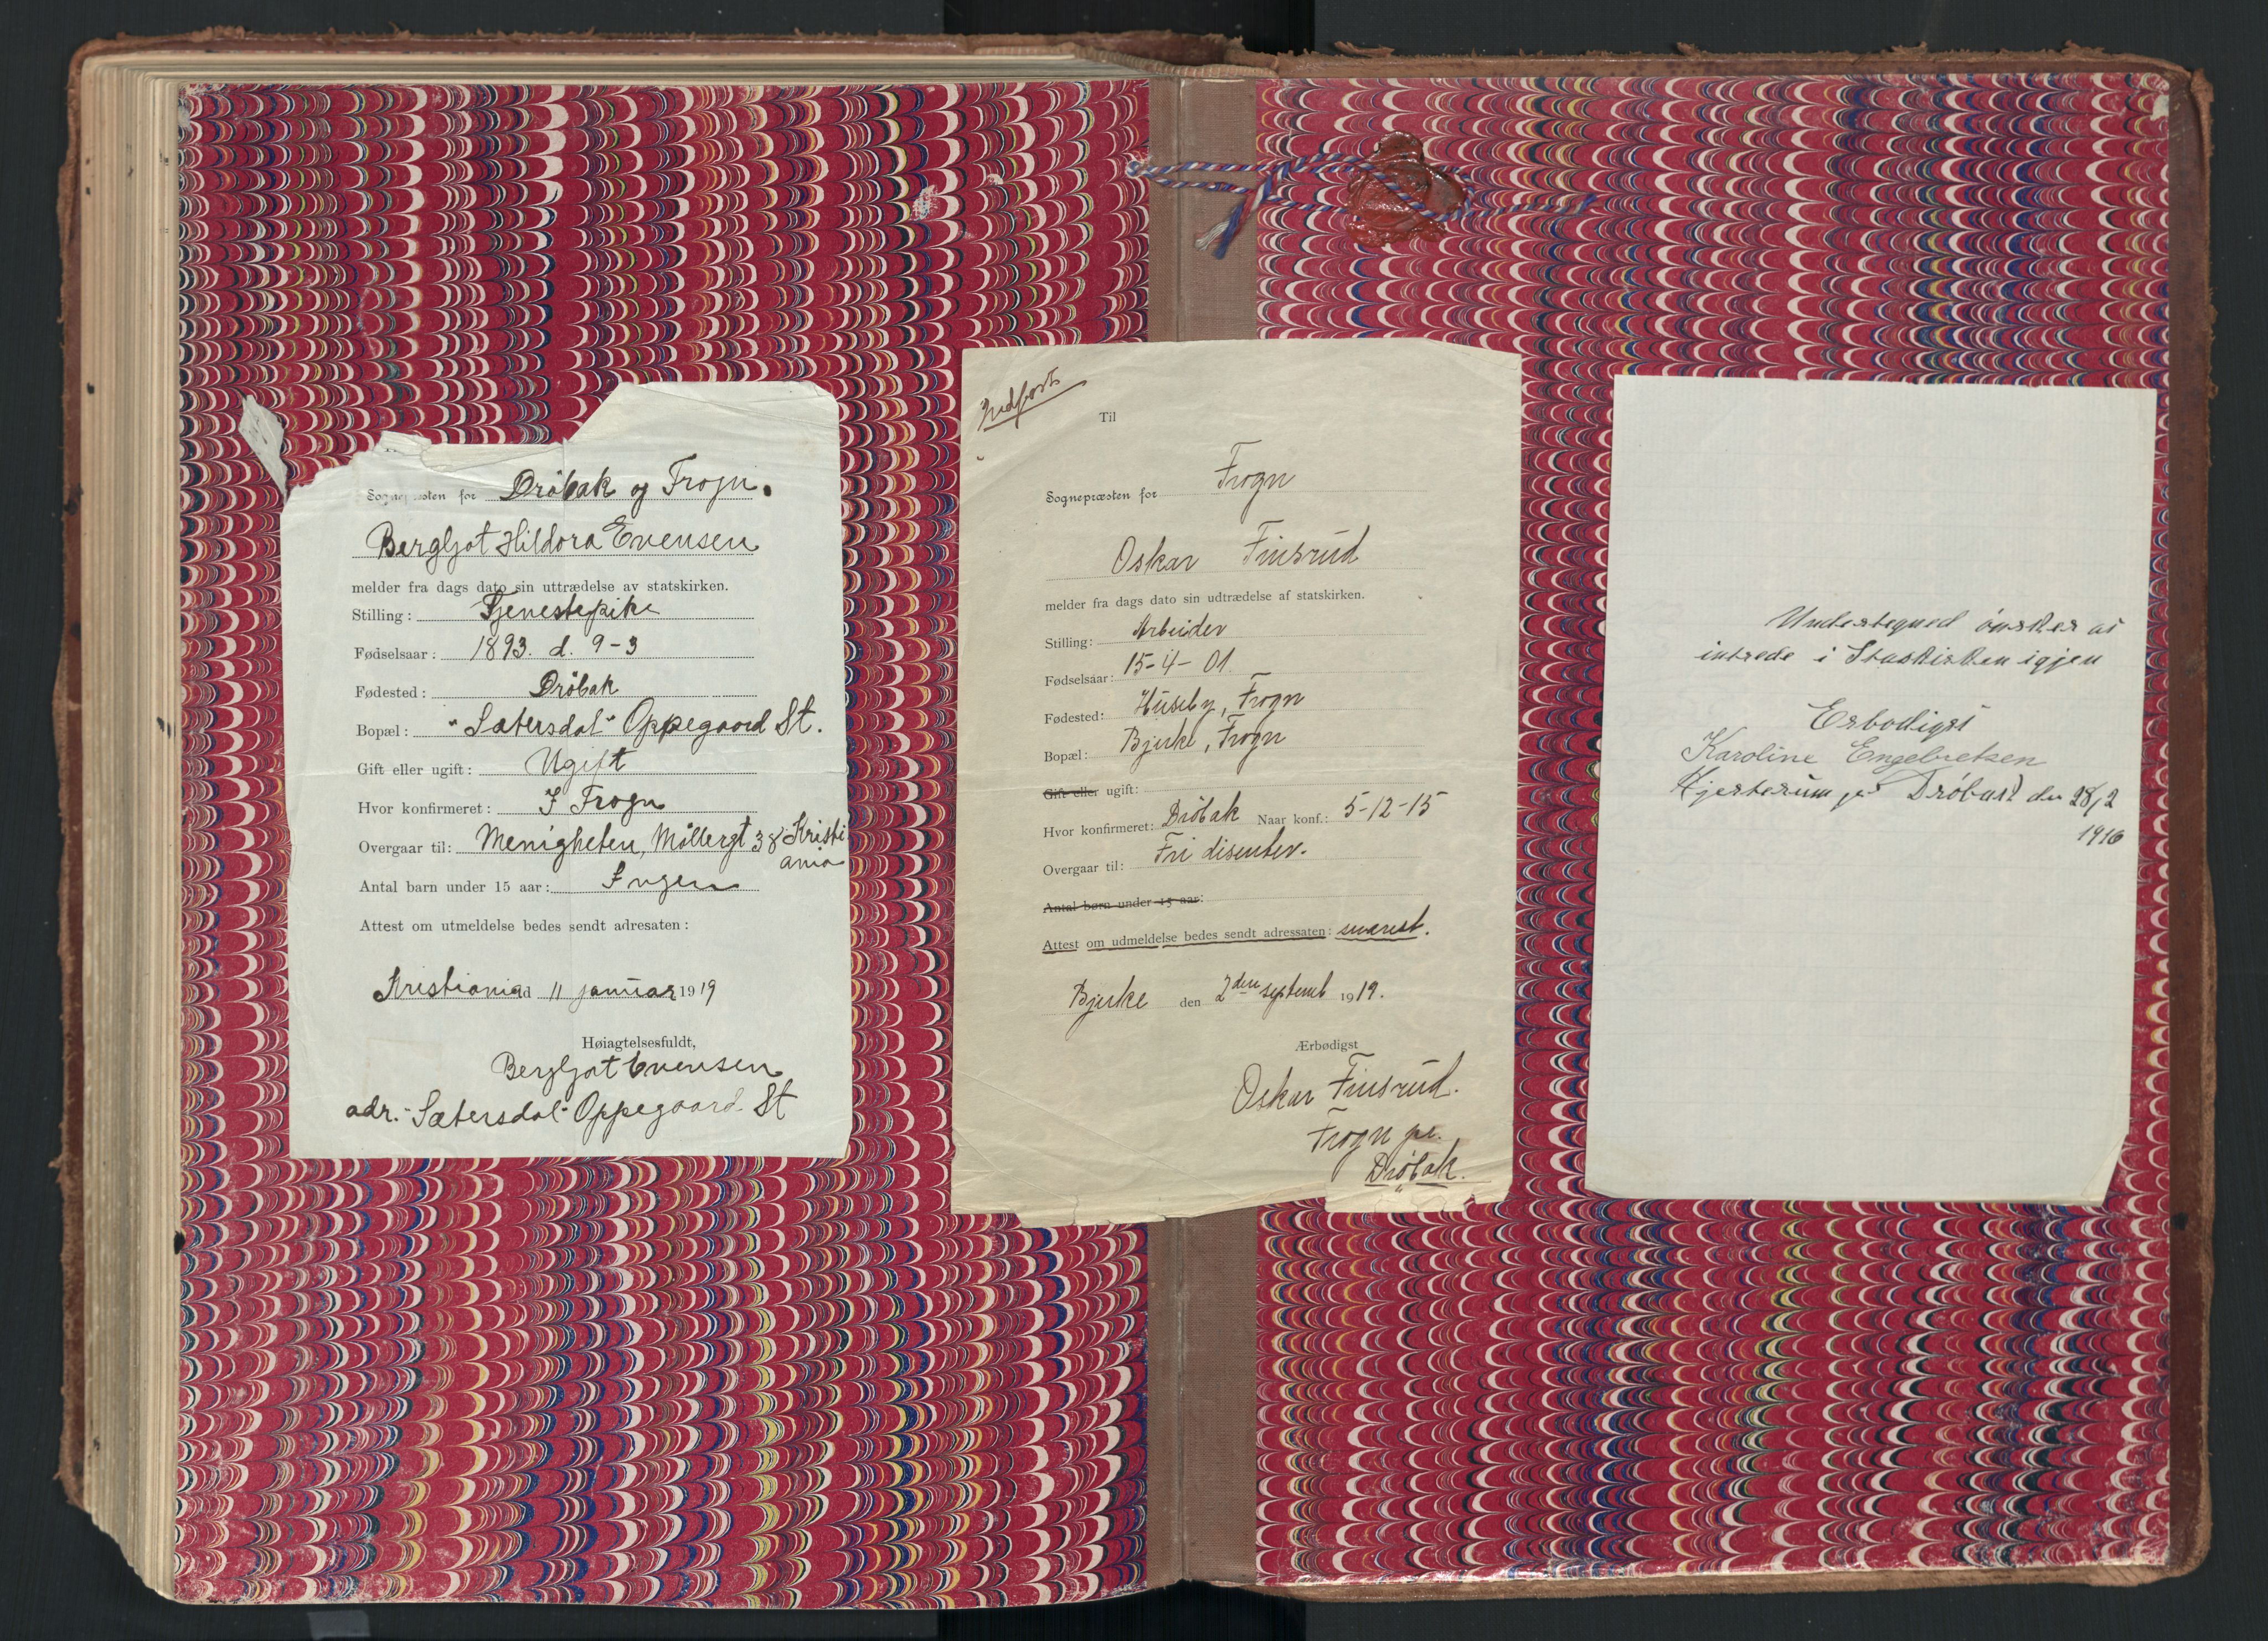 Sognepræsten for Drøbak og Frogn.
Bergljot Hildora Evensen
melder fra dags dato sin uttrædelse av statskirken.
Stilling: Tjenestepike
Fødselsaar: 1893. d. 9-3
Fødested: Drøbak
Bopæl: "Sætersdal" Oppegaard St.
Gift eller ugift: Ugift
Hvor konfirmeret: I Frogn
Overgaar til: Menigheten, Møllergt 38 Kristi
ania
Antal barn under 15 aar: Ingen
Attest om utmeldelse bedes sendt adresaten:
Kristiania d 11 januar 1919
Høiagtelsesfuldt,
Bergljot Evensen
adr. "Sætersdal" Oppegaard St
Indført
Til
Sognepræsten for Frogn
Oskar Finsrud
melder fra dags dato sin udtrædelse af statskirken.
Stilling: Arbeider
Fødselsaar: 15-4-01.
Fødested: Huseby, Frogn
Bopæl: Bjerke, Frogn
Gift eller ugift:
Hvor konfirmeret: Drøbak Naar konf.: 5-12-15
Overgaar til: Fri disenter.
Antal børn under 15 aar:
Attest om udmeldelse bedes sendt adressaten: snarest.
Bjerke den 2den septemb 1919.
Ærbødigst
Oskar Finsrud.
Frogn pr.
Drøbak.
Undertegned ønsker at
intrede i Staskirken igjen
Erbødigst
Karoline Engebretsen
Hjerterum pr Drøbak den 28/2
1916